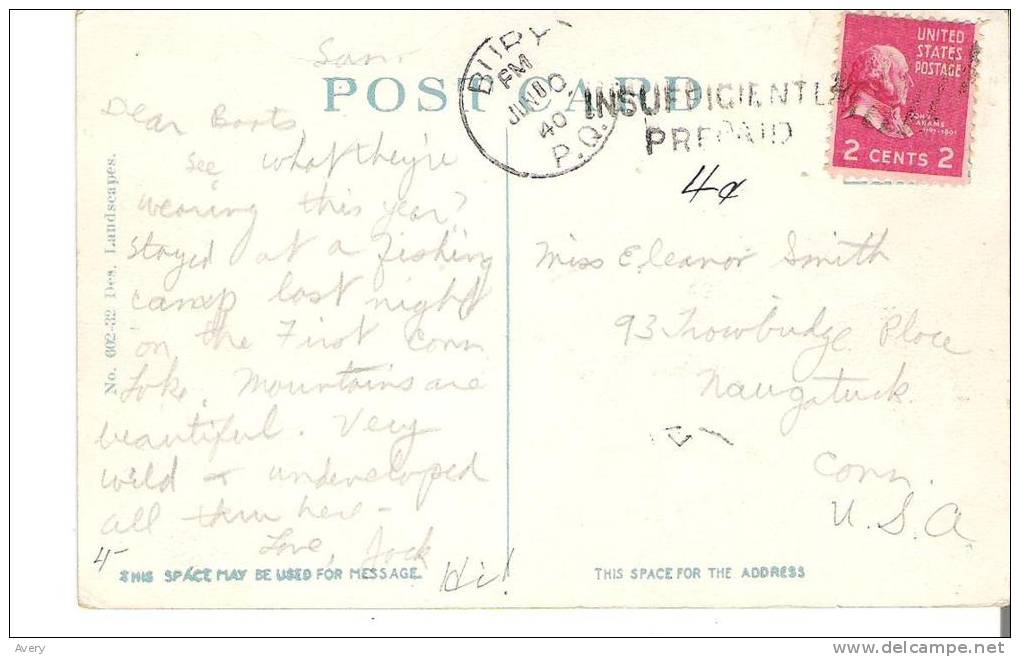 Sam
POST CARD
BURY
PM
JUN
40
P.Q.
INSUFFICIENTLY
PREPAID
4¢
UNITED
STATES
POSTAGE
JOHN
ADAMS
1797-1801
2 CENTS 2
No. 602-32 Des. Landscapes.
Dear Boots
See what they're
wearing this year?
Stayed at a fishing
camp last night
on the First Conn
Lake. Mountains are
beautiful. Very
wild + undeveloped
all thru here -
Love, Jack
4-
Hi!
THIS SPACE MAY BE USED FOR MESSAGE.
Miss Eleanor Smith
93 Trowbridge Place
Naugatuck
Conn.
U.S.A
THIS SPACE FOR THE ADDRESS
Avery
www.delcampe.net